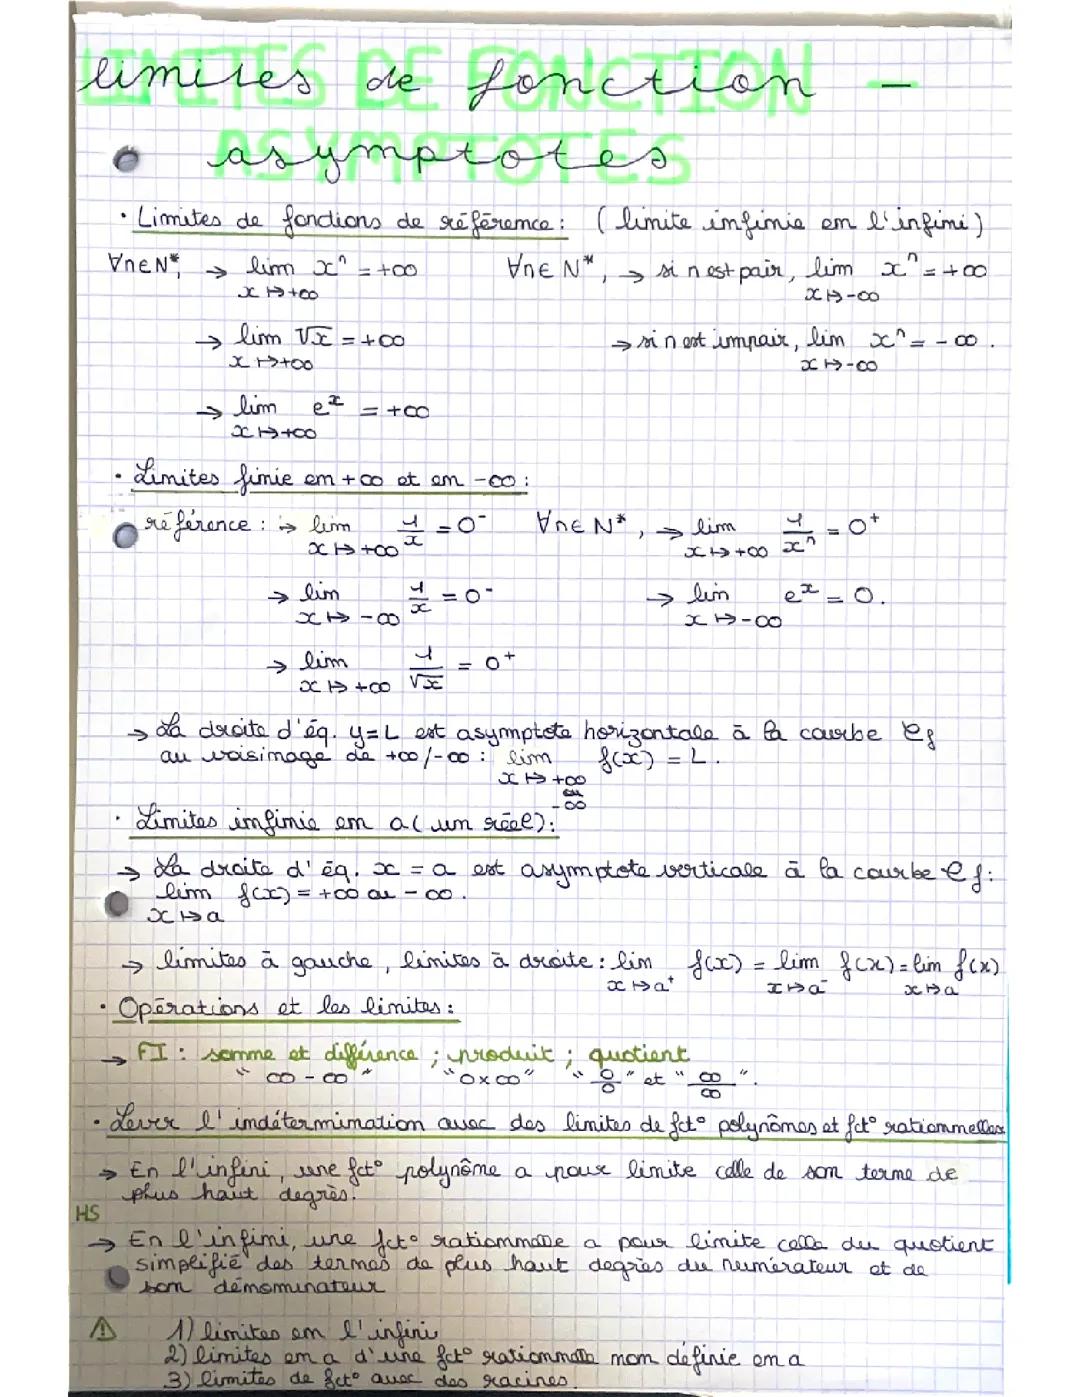 LIMITES DE FONCTION
limites de fonction -
ASYMPTOTES
asymptotes
• Limites de fonctions de référence : ( limite infinie en l'infini )
∀n∈N*, → lim xⁿ = +∞ ∀n∈ N*, → si n est pair, lim xⁿ = +∞
x ↦ +∞ x ↦ -∞
→ lim √x = +∞ → si n est impair, lim xⁿ = - ∞ .
x ↦ +∞ x ↦ -∞
→ lim eˣ = +∞
x ↦ +∞
• Limites finie en +∞ et en -∞ :
référence : → lim 1/x = 0⁻ ∀n∈ N*, → lim 1/xⁿ = 0⁺
x ↦ +∞ x ↦ +∞
→ lim 1/x = 0⁻ → lim eˣ = 0.
x ↦ -∞ x ↦ -∞
→ lim 1/√x = 0⁺
x ↦ +∞
→ La droite d'éq. y = L est asymptote horizontale à la courbe Cf
au voisinage de +∞/-∞ : lim f(x) = L .
x ↦ +∞
ou
-∞
• Limites infinie en a ( un réel ) :
→ La droite d'éq. x = a est asymptote verticale à la courbe Cf :
lim f(x) = +∞ ou - ∞ .
x ↦ a
→ limites à gauche , limites à droite : lim f(x) = lim f(x) = lim f(x)
x ↦ a⁺ x ↦ a⁻ x ↦ a
• Opérations et les limites :
→ FI : somme et différence ; produit ; quotient
" ∞ - ∞ " " 0 × ∞ " " 0/0 " et " ∞/∞ ".
• Lever l'indétermination avec des limites de fct° polynômes et fct° rationnelles
→ En l'infini, une fct° polynôme a pour limite celle de son terme de
plus haut degrès.
HS
→ En l'infini, une fct° rationnelle a pour limite celle du quotient
simplifié des termes de plus haut degrès du numérateur et de
son dénominateur
⚠ 1) limites en l'infini
2) limites en a d'une fct° rationnelle non définie en a
3) limites de fct° avec des racines.